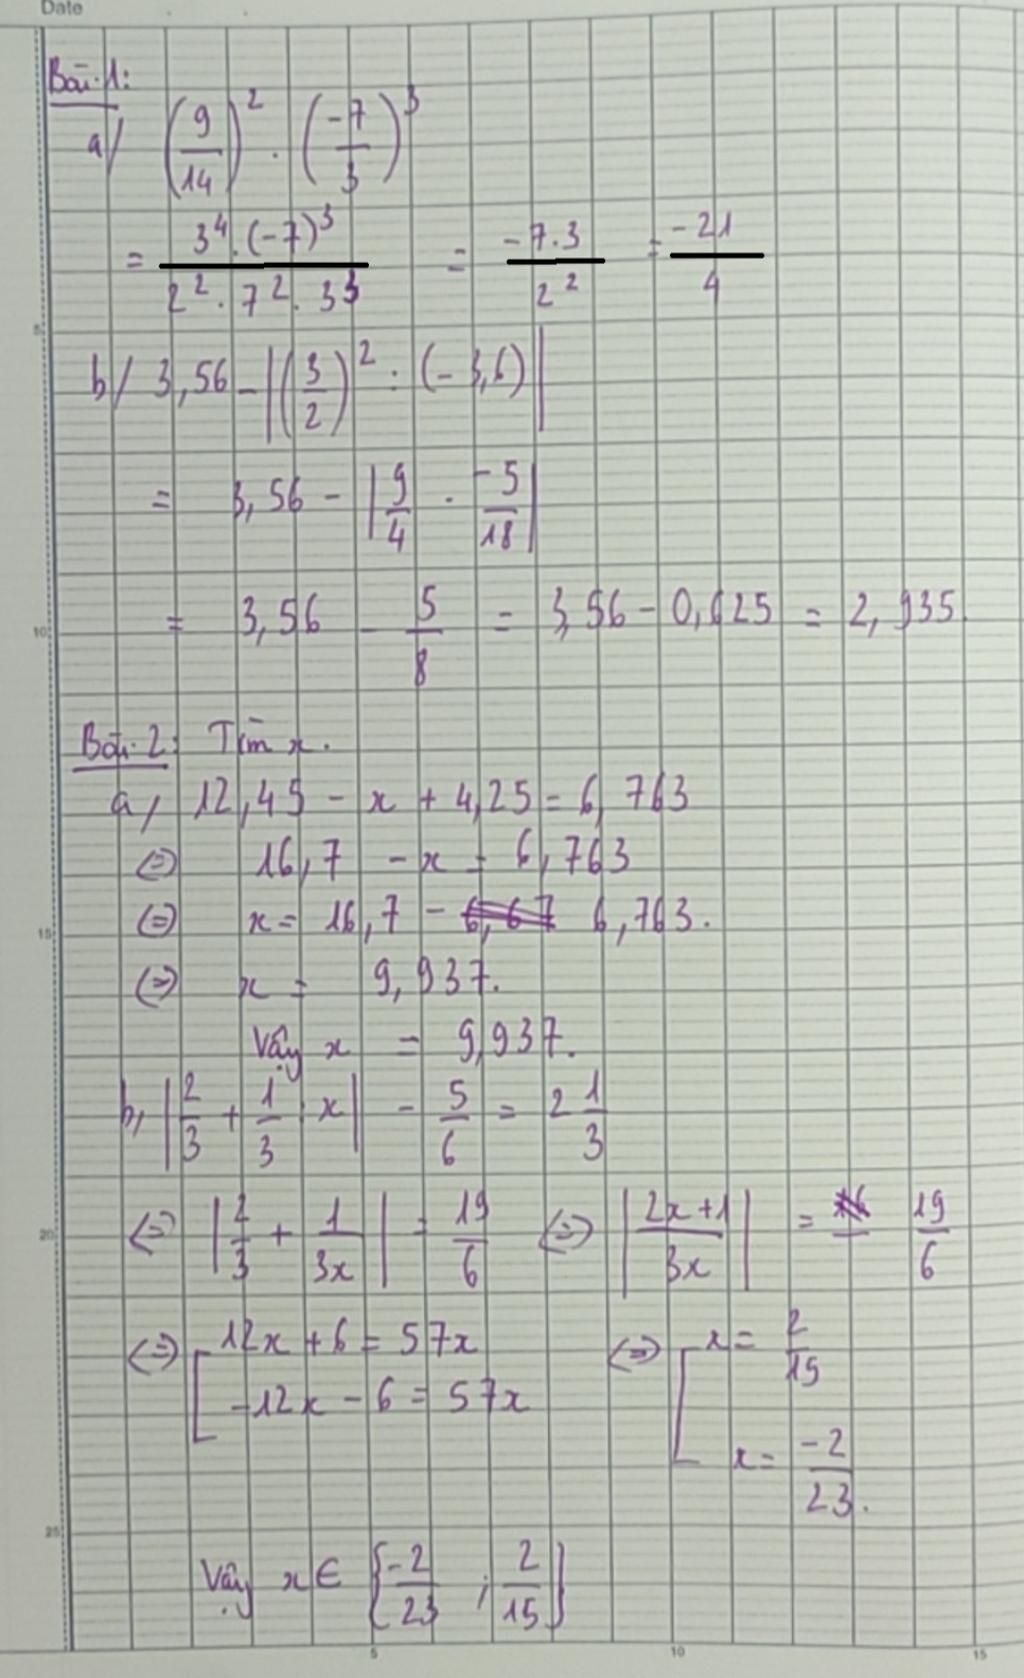 Date
Bài 1:
a/ (9/14)² . (-7/3)³
= 3⁴.(-7)³ / 2².7².3³ = -7.3 / 2² = -21/4
b/ 3,56 - |(3/2)² : (-3,6)|
= 3,56 - |9/4 . -5/18|
= 3,56 - 5/8 = 3,56 - 0,625 = 2,935.
Bài 2: Tìm x.
a, 12,45 - x + 4,25 = 6,763
⇔ 16,7 - x = 6,763
⇔ x = 16,7 - 6,763.
⇔ x = 9,937.
Vậy x = 9,937.
b, |2/3 + 1/3 : x| - 5/6 = 2 1/3
⇔ |2/3 + 1/3x| = 19/6 ⇔ |2x+1 / 3x| = 19/6
⇔ [ 12x + 6 = 57x ⇔ [ x = 2/15
-12x - 6 = 57x x = -2/23.
Vậy x ∈ {-2/23 ; 2/15}
5
10
15
20
25
5
10
15